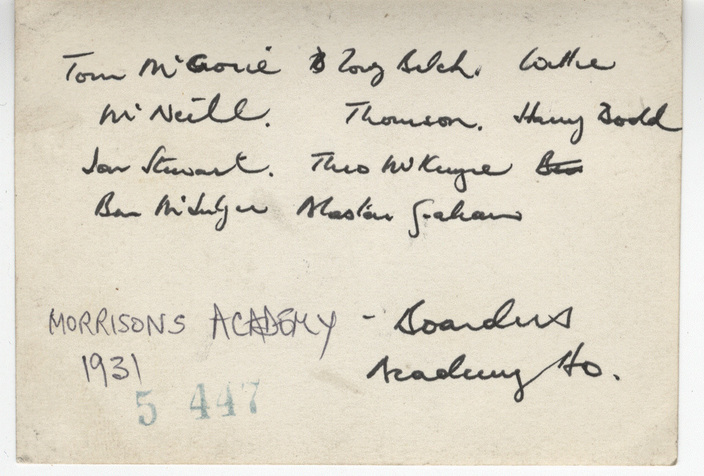 Tom McGorie Tony Belch. Wattie
McNeill. Thomson. Harry Dodd
Ian Stewart. Theo McKenzie
Ben McIntyre Alastair Graham
MORRISONS ACADEMY - Boarders
1931 Academy Ho.
5 447